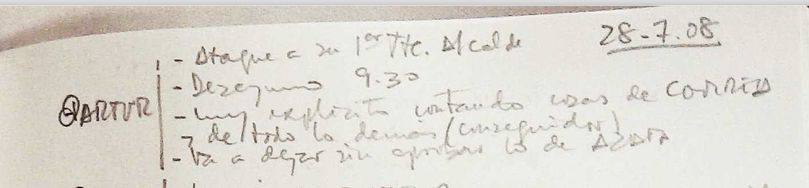 28-7.08
- Ataque a su 1er Tte. Alcalde
- Desayuno 9.30
ARTUR - muy explícito contando cosas de CORREA
y de todo lo demás (conseguidor)
- Va a dejar sin aprobar lo de